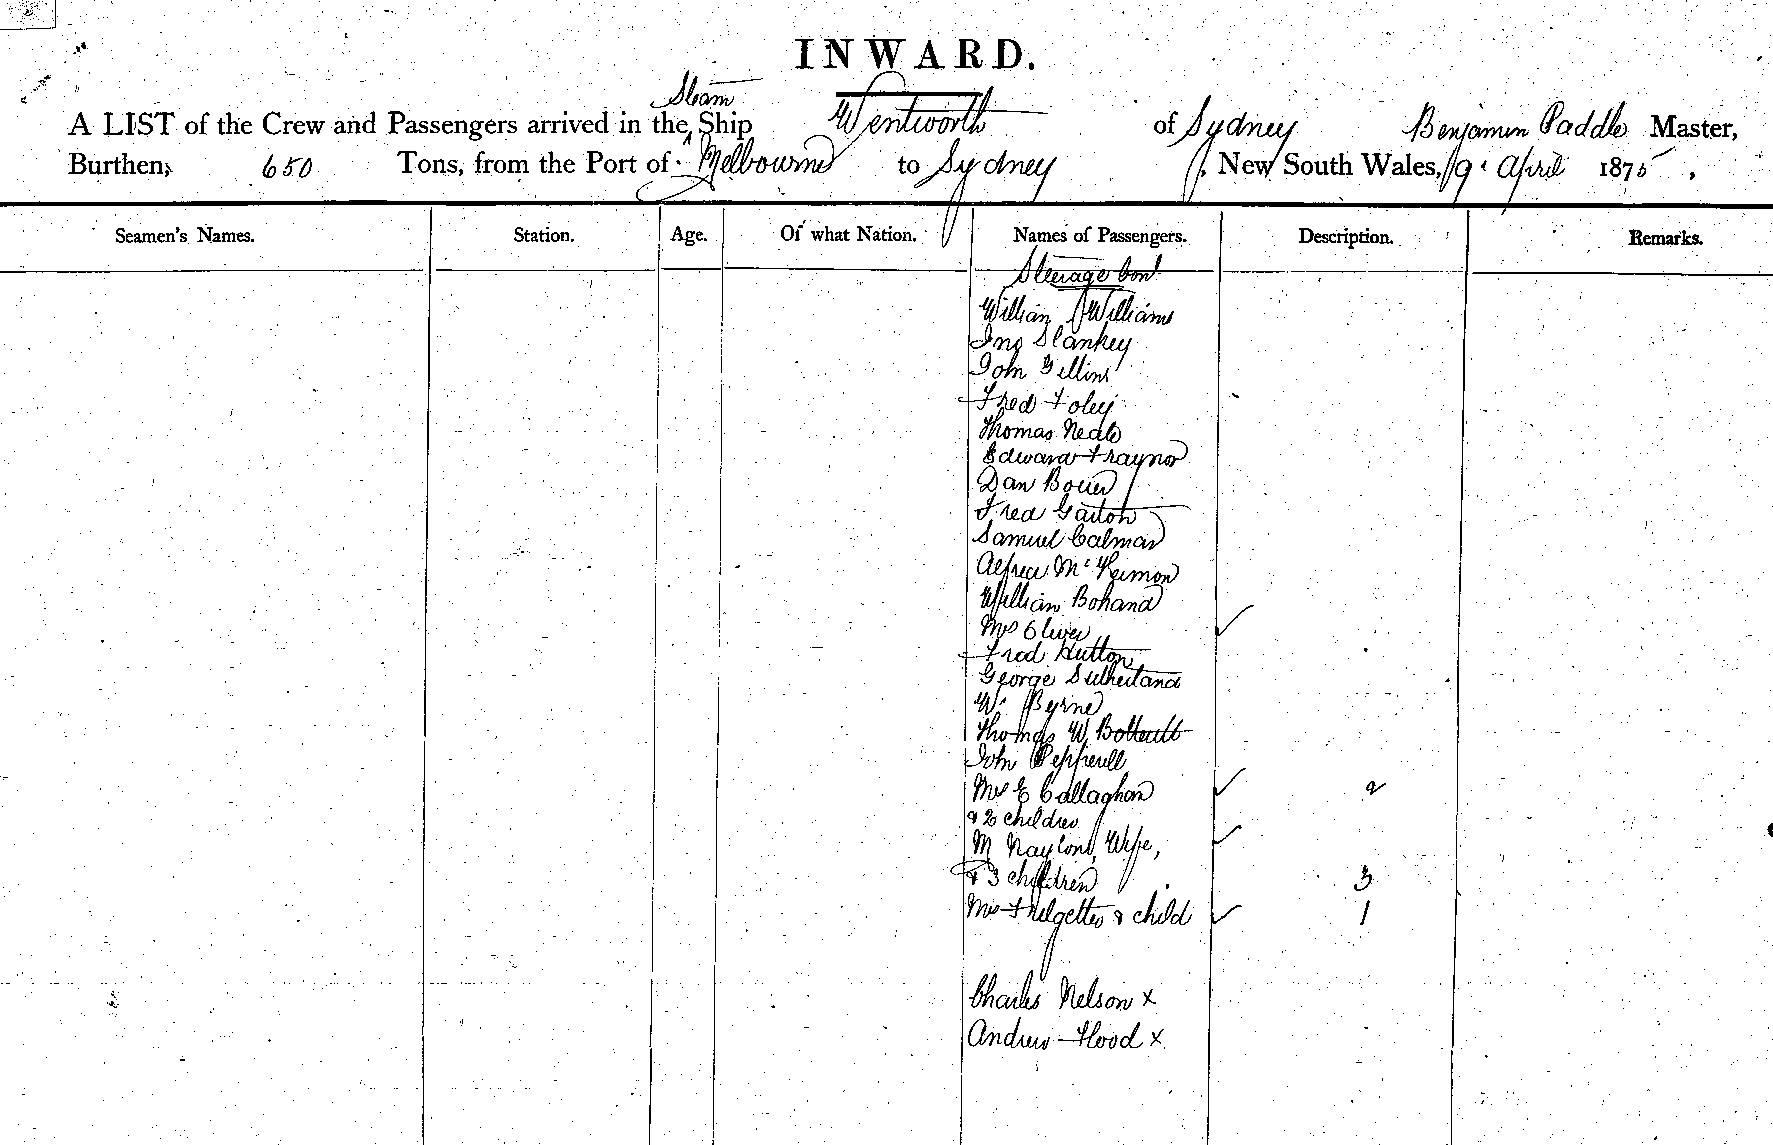 INWARD.
Steam
A LIST of the Crew and Passengers arrived in the Ship Wentworth of Sydney Benjamin Paddle Master,
Burthen, 650 Tons, from the Port of Melbourne to Sydney, New South Wales, 19 April 1875.
Seamen's Names. Station. Age. Of what Nation. Names of Passengers. Description. Remarks.
Steerage
William Williams
Jno Slankey
John
Fred Foley
Thomas Neale
Edward Traynor
Dan
Fred Garton
Samuel Calman
Alfred
William Bohand
Mrs Oliver
Fred Hutton
George Sutherland
W. Byrne
Thomas W.
John Pepperell
Mrs E Callaghan 2
& 2 children
M Naylor, Wife,
& 3 children 3
Mrs & child 1
Charles Nelson x
Andrew Hood x